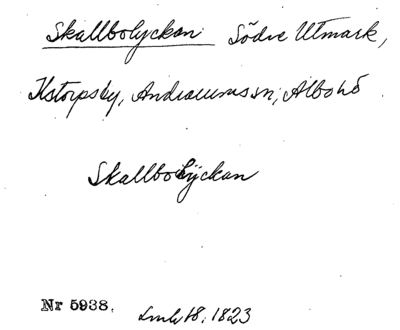 Skallbolyckan Södre Utmark,
Ilstorpsby, Andrarums sn, Albo hd
Skallbo Lÿckan
Nr 5938. Lmh 18, 1823